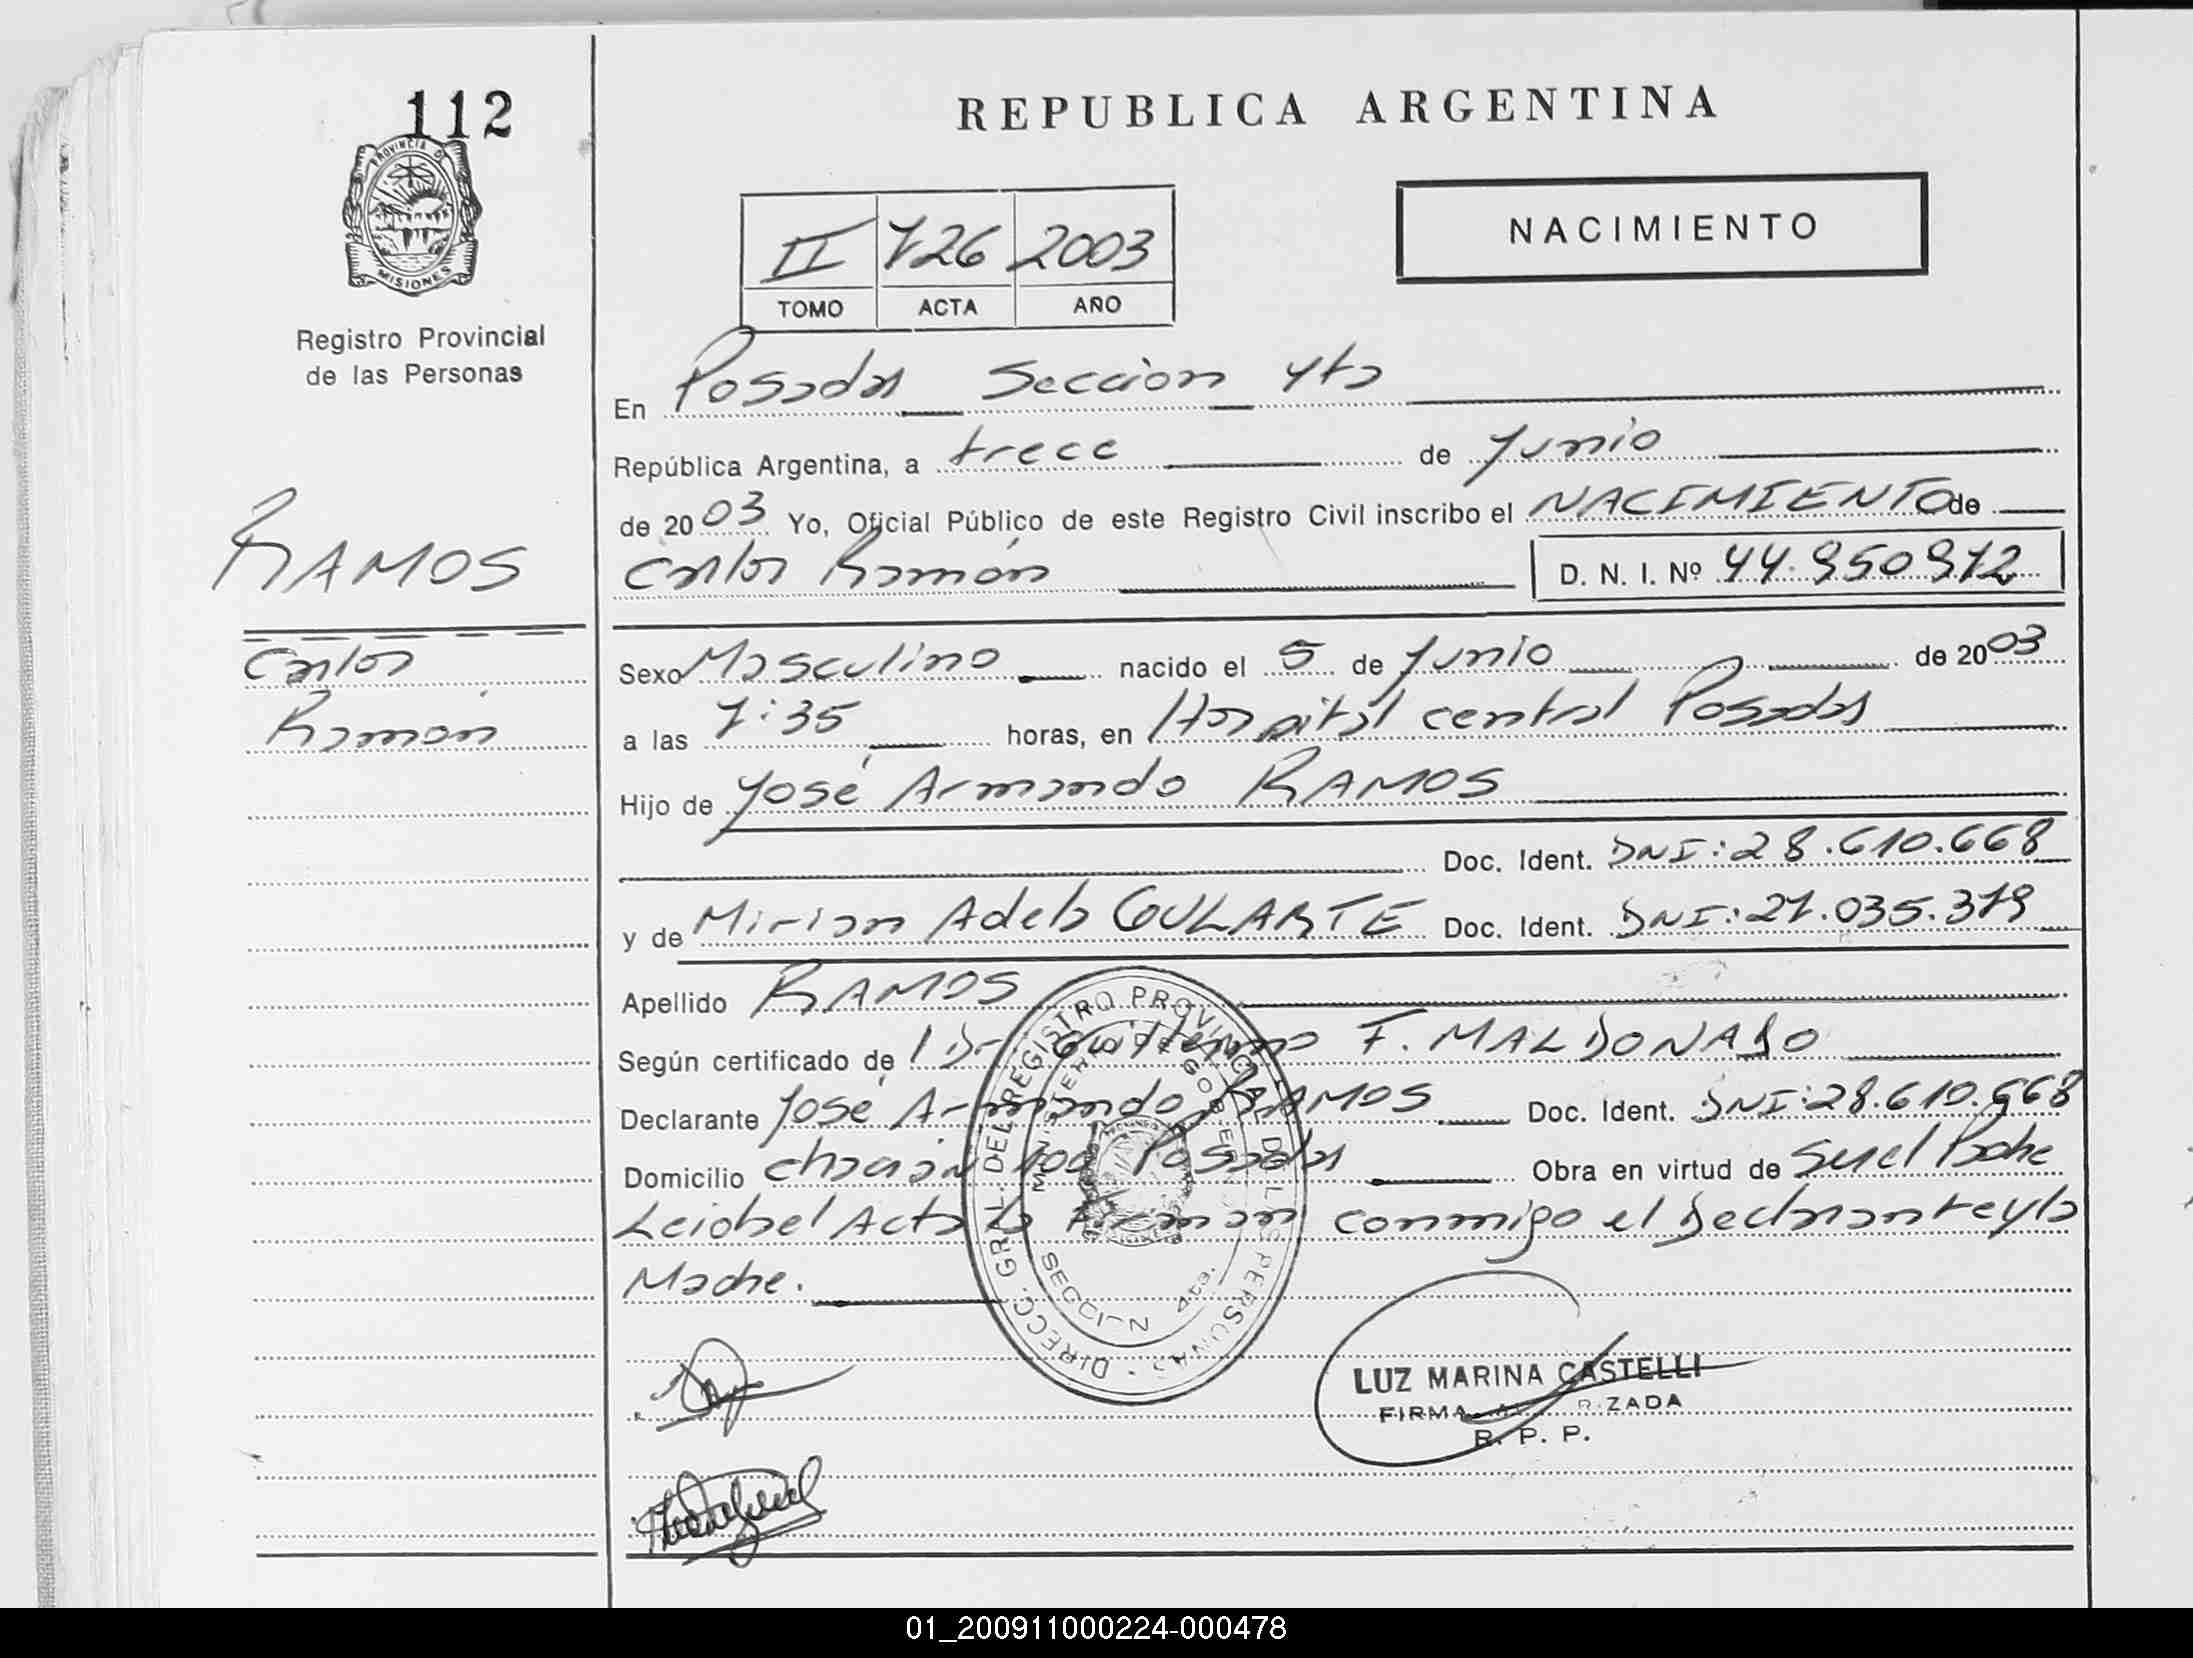 112
REPUBLICA ARGENTINA
PROVINCIA D
MISIONES
Registro Provincial
de las Personas
II 726 2003
TOMO ACTA AÑO
NACIMIENTO
En Posadas Sección 4ta
República Argentina, a trece de Junio
de 2003 Yo, Oficial Público de este Registro Civil inscribo el NACIMIENTO de
Carlos Ramón D. N. I. Nº 44.950.972
RAMOS
Carlos
Ramón
Sexo Masculino nacido el 5 de Junio de 2003
a las 7:35 horas, en Hospital central Posadas
Hijo de José Armando RAMOS
Doc. Ident. DNI: 28.610.668
y de Mirian Adela GULARTE Doc. Ident. DNI: 27.035.379
Apellido RAMOS
Según certificado de Dr. Guillermo F. MALDONADO
Declarante José Armando RAMOS Doc. Ident. DNI: 28.610.668
Domicilio Posadas Obra en virtud de ser el Padre
Leida el Acta la Firman conmigo el Declarante y la
Madre.
DIRECC. GRAL. DEL REGISTRO PROVINCIAL DE LAS PERSONAS
SECCION 4ta.
LUZ MARINA CASTELLI
FIRMA AUTORIZADA
R. P. P.
01_200911000224-000478